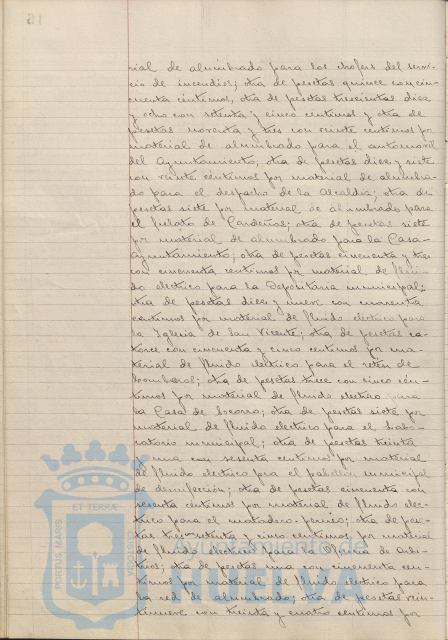 rial de alumbrado para los chofers del servi-
cio de incendios; otra de pesetas quince con cin-
cuenta céntimos, otra de pesetas trescientas diez
y ocho con setenta y cinco centimos y otra de
pesetas noventa y tres con veinte centimos por
material de alumbrado para el automovil
del Ayuntamiento; otra de pesetas diez y siete
con veinte centimos por material de alumbra-
do para el despacho de la Alcaldía; otra de
pesetas siete por material de alumbrado para
el fielato de Cardeñas; otra de pesetas siete
por material de alumbrado para la Casa-
Ayuntamiento; otra de pesetas cincuenta y tres
con cincuenta centimos por material de flúi-
do electrico para la Depositaria municipal;
otra de pesetas diez y nueve con cuarenta
centimos por material de fluido electrico para
la Iglesia de San Vicente; otra de pesetas ca-
torce con cincuenta y cinco centimos por ma-
terial de fluido electrico para el retén de
bomberos; otra de pesetas trece con cinco cén-
timos por material de fluido electrico para
la Casa de Socorro; otra de pesetas siete por
material de fluido electrico para el Labo-
ratorio municipal; otra de pesetas treinta
y una con sesenta centimos por material
de fluido electrico para el pabellón municipal
de desinfección; otra de pesetas cincuenta con
sesenta centimos por material de fluido elec-
trico para el matadero; otra de pese-
tas y cinco centimos por material
de fluido electrico para la de Arbi-
trios; otra de pesetas una con cincuenta cen-
timos por material de fluido electrico para
la red de alumbrado; otra de pesetas vein-
tinueve con treinta y cuatro centimos por
PORTUS MANIS
ET TERRÆ
Ayuntamiento de
HUELVA